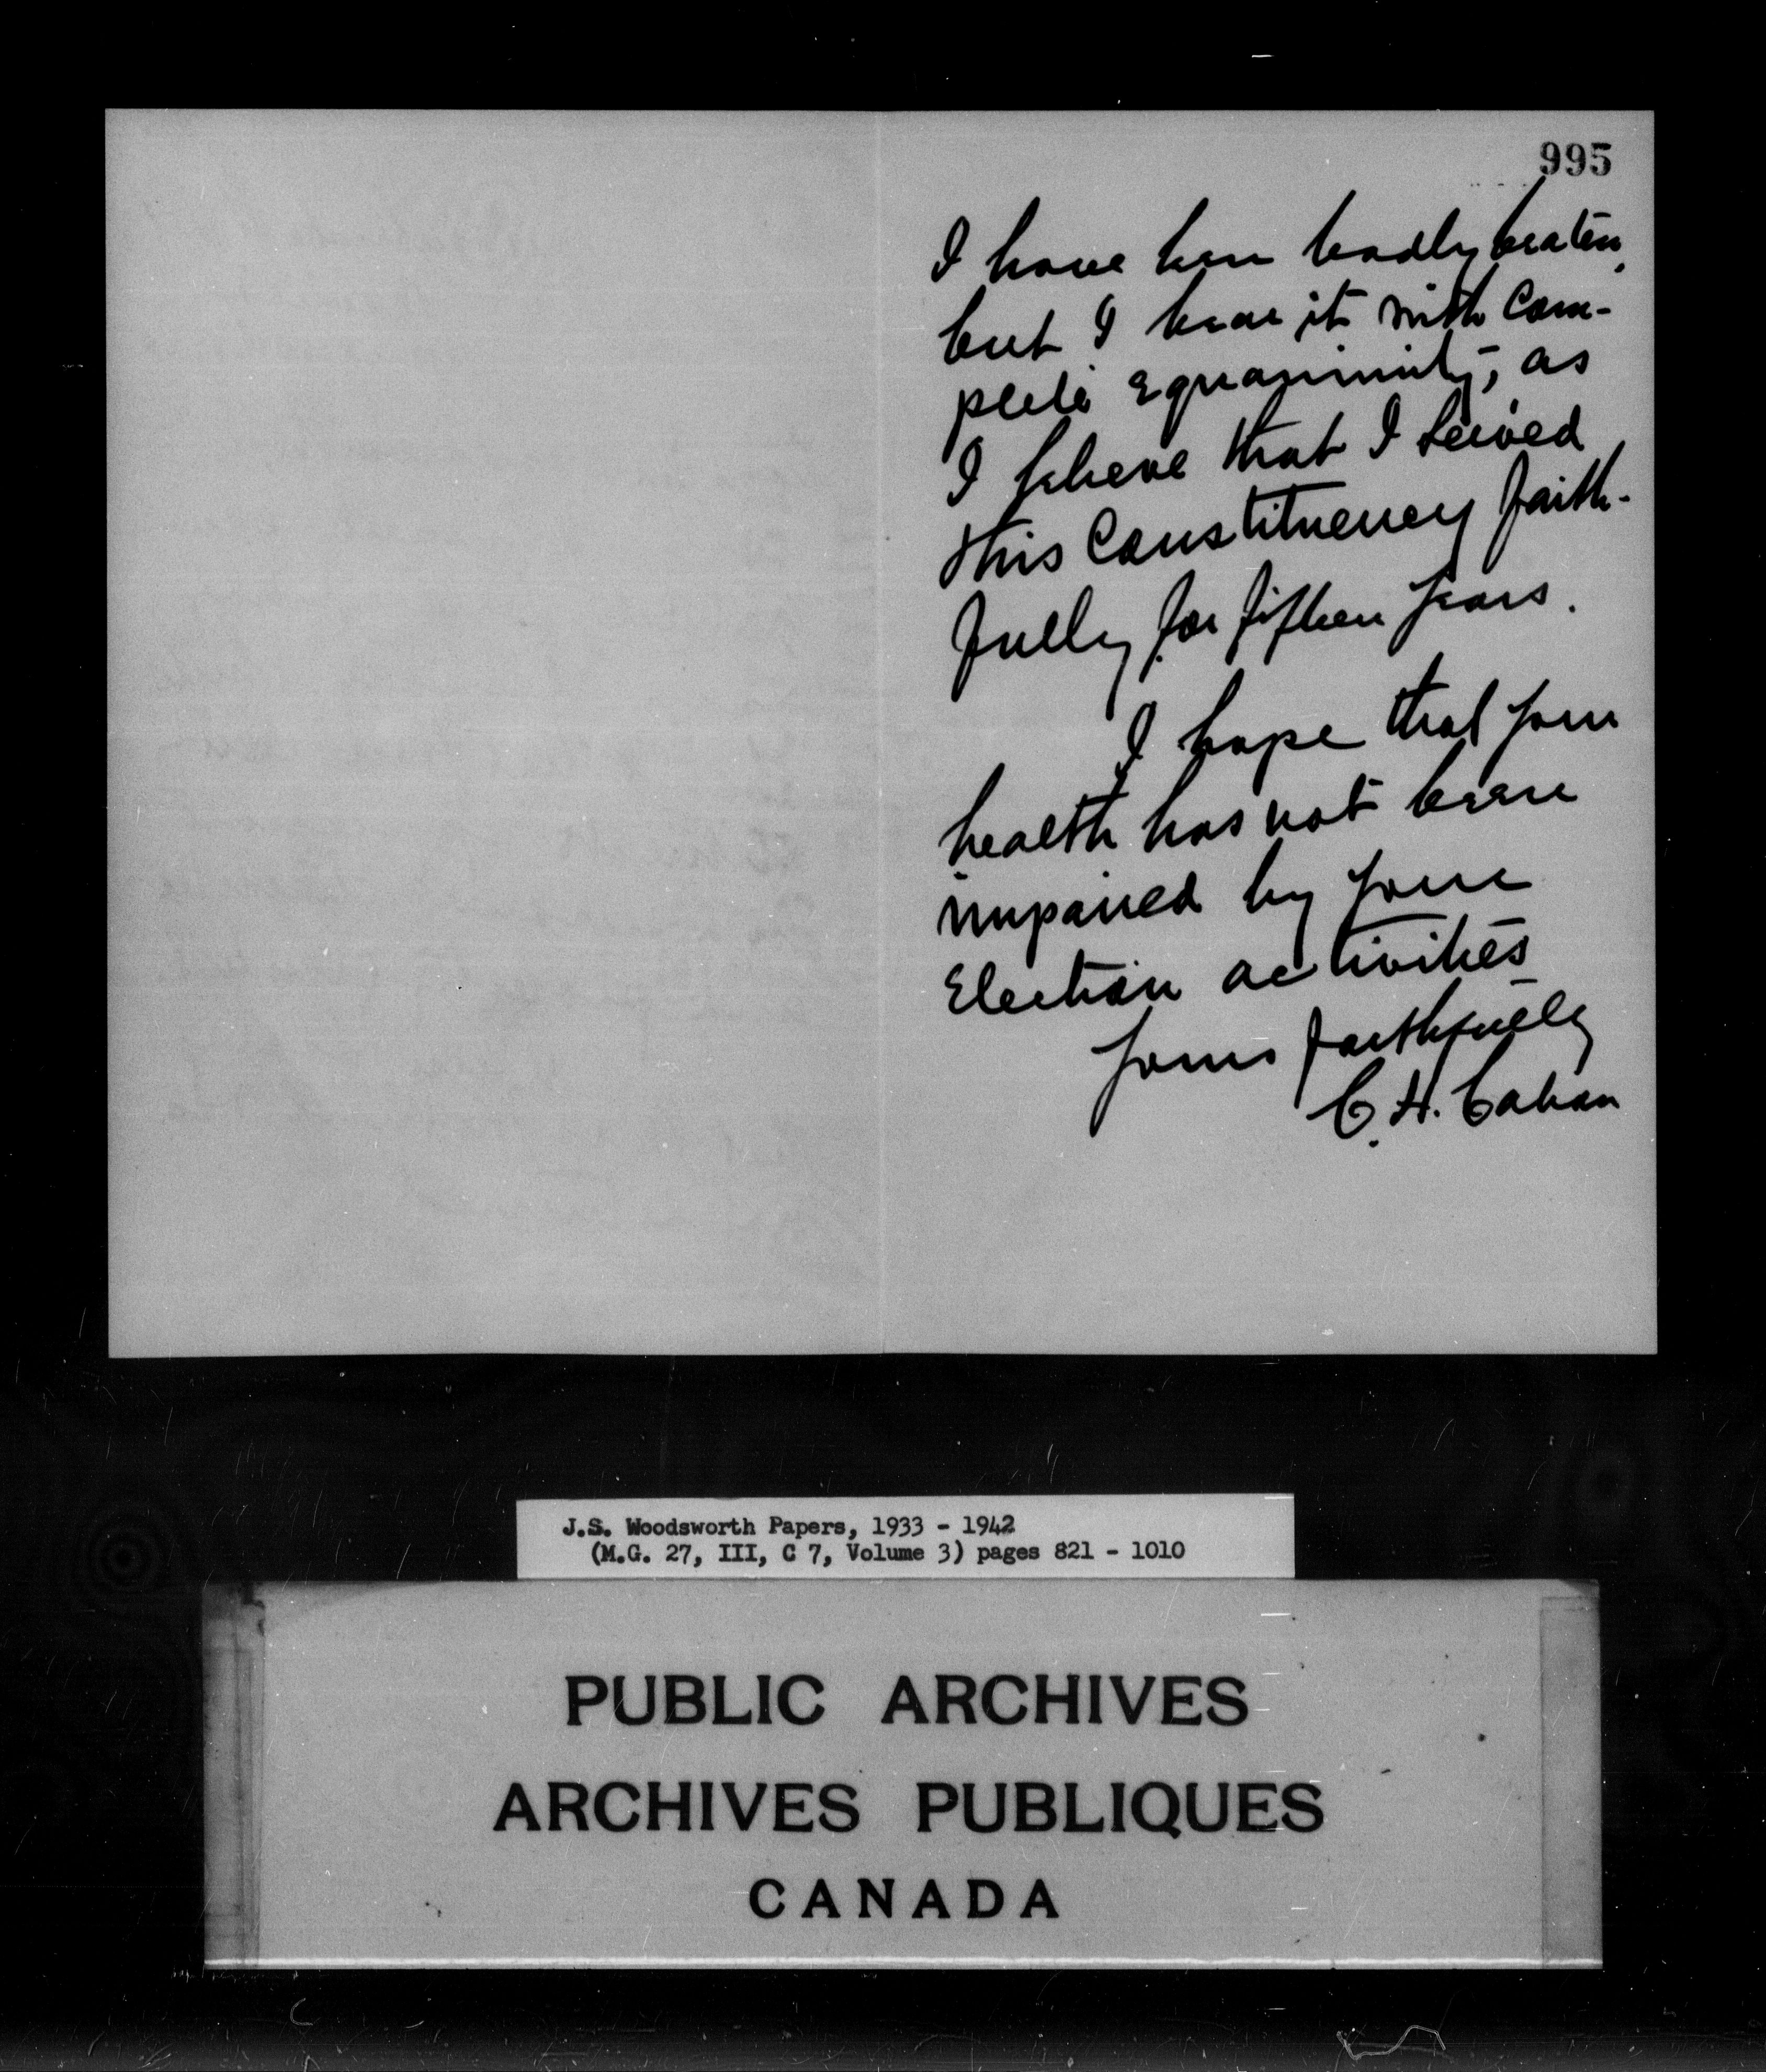 995
I have been badly beaten,
but I bear it with com-
plete equanimity, as
I believe that I served
this Constituency faith-
fully for fifteen years.
I hope that your
health has not been
impaired by your
Election activities
Yours faithfully
C. H. Cahan
J.S. Woodsworth Papers, 1933 - 1942
(M.G. 27, III, C 7, Volume 3) pages 821 - 1010
PUBLIC ARCHIVES
ARCHIVES PUBLIQUES
CANADA